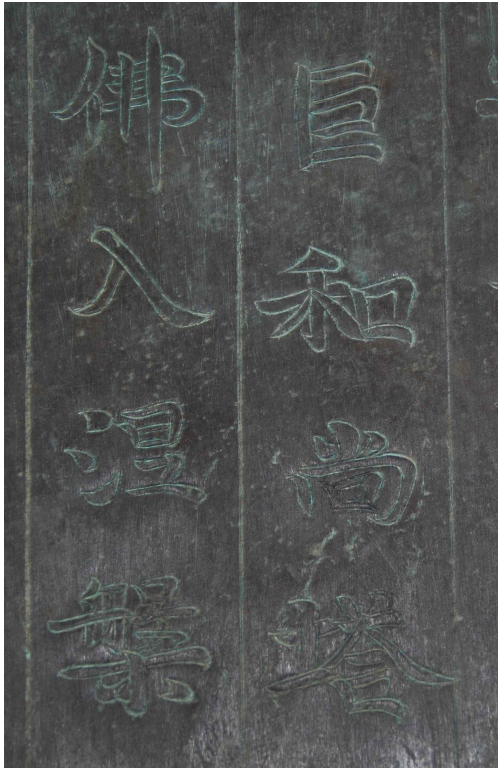 巨和尚塔
佛入涅槃